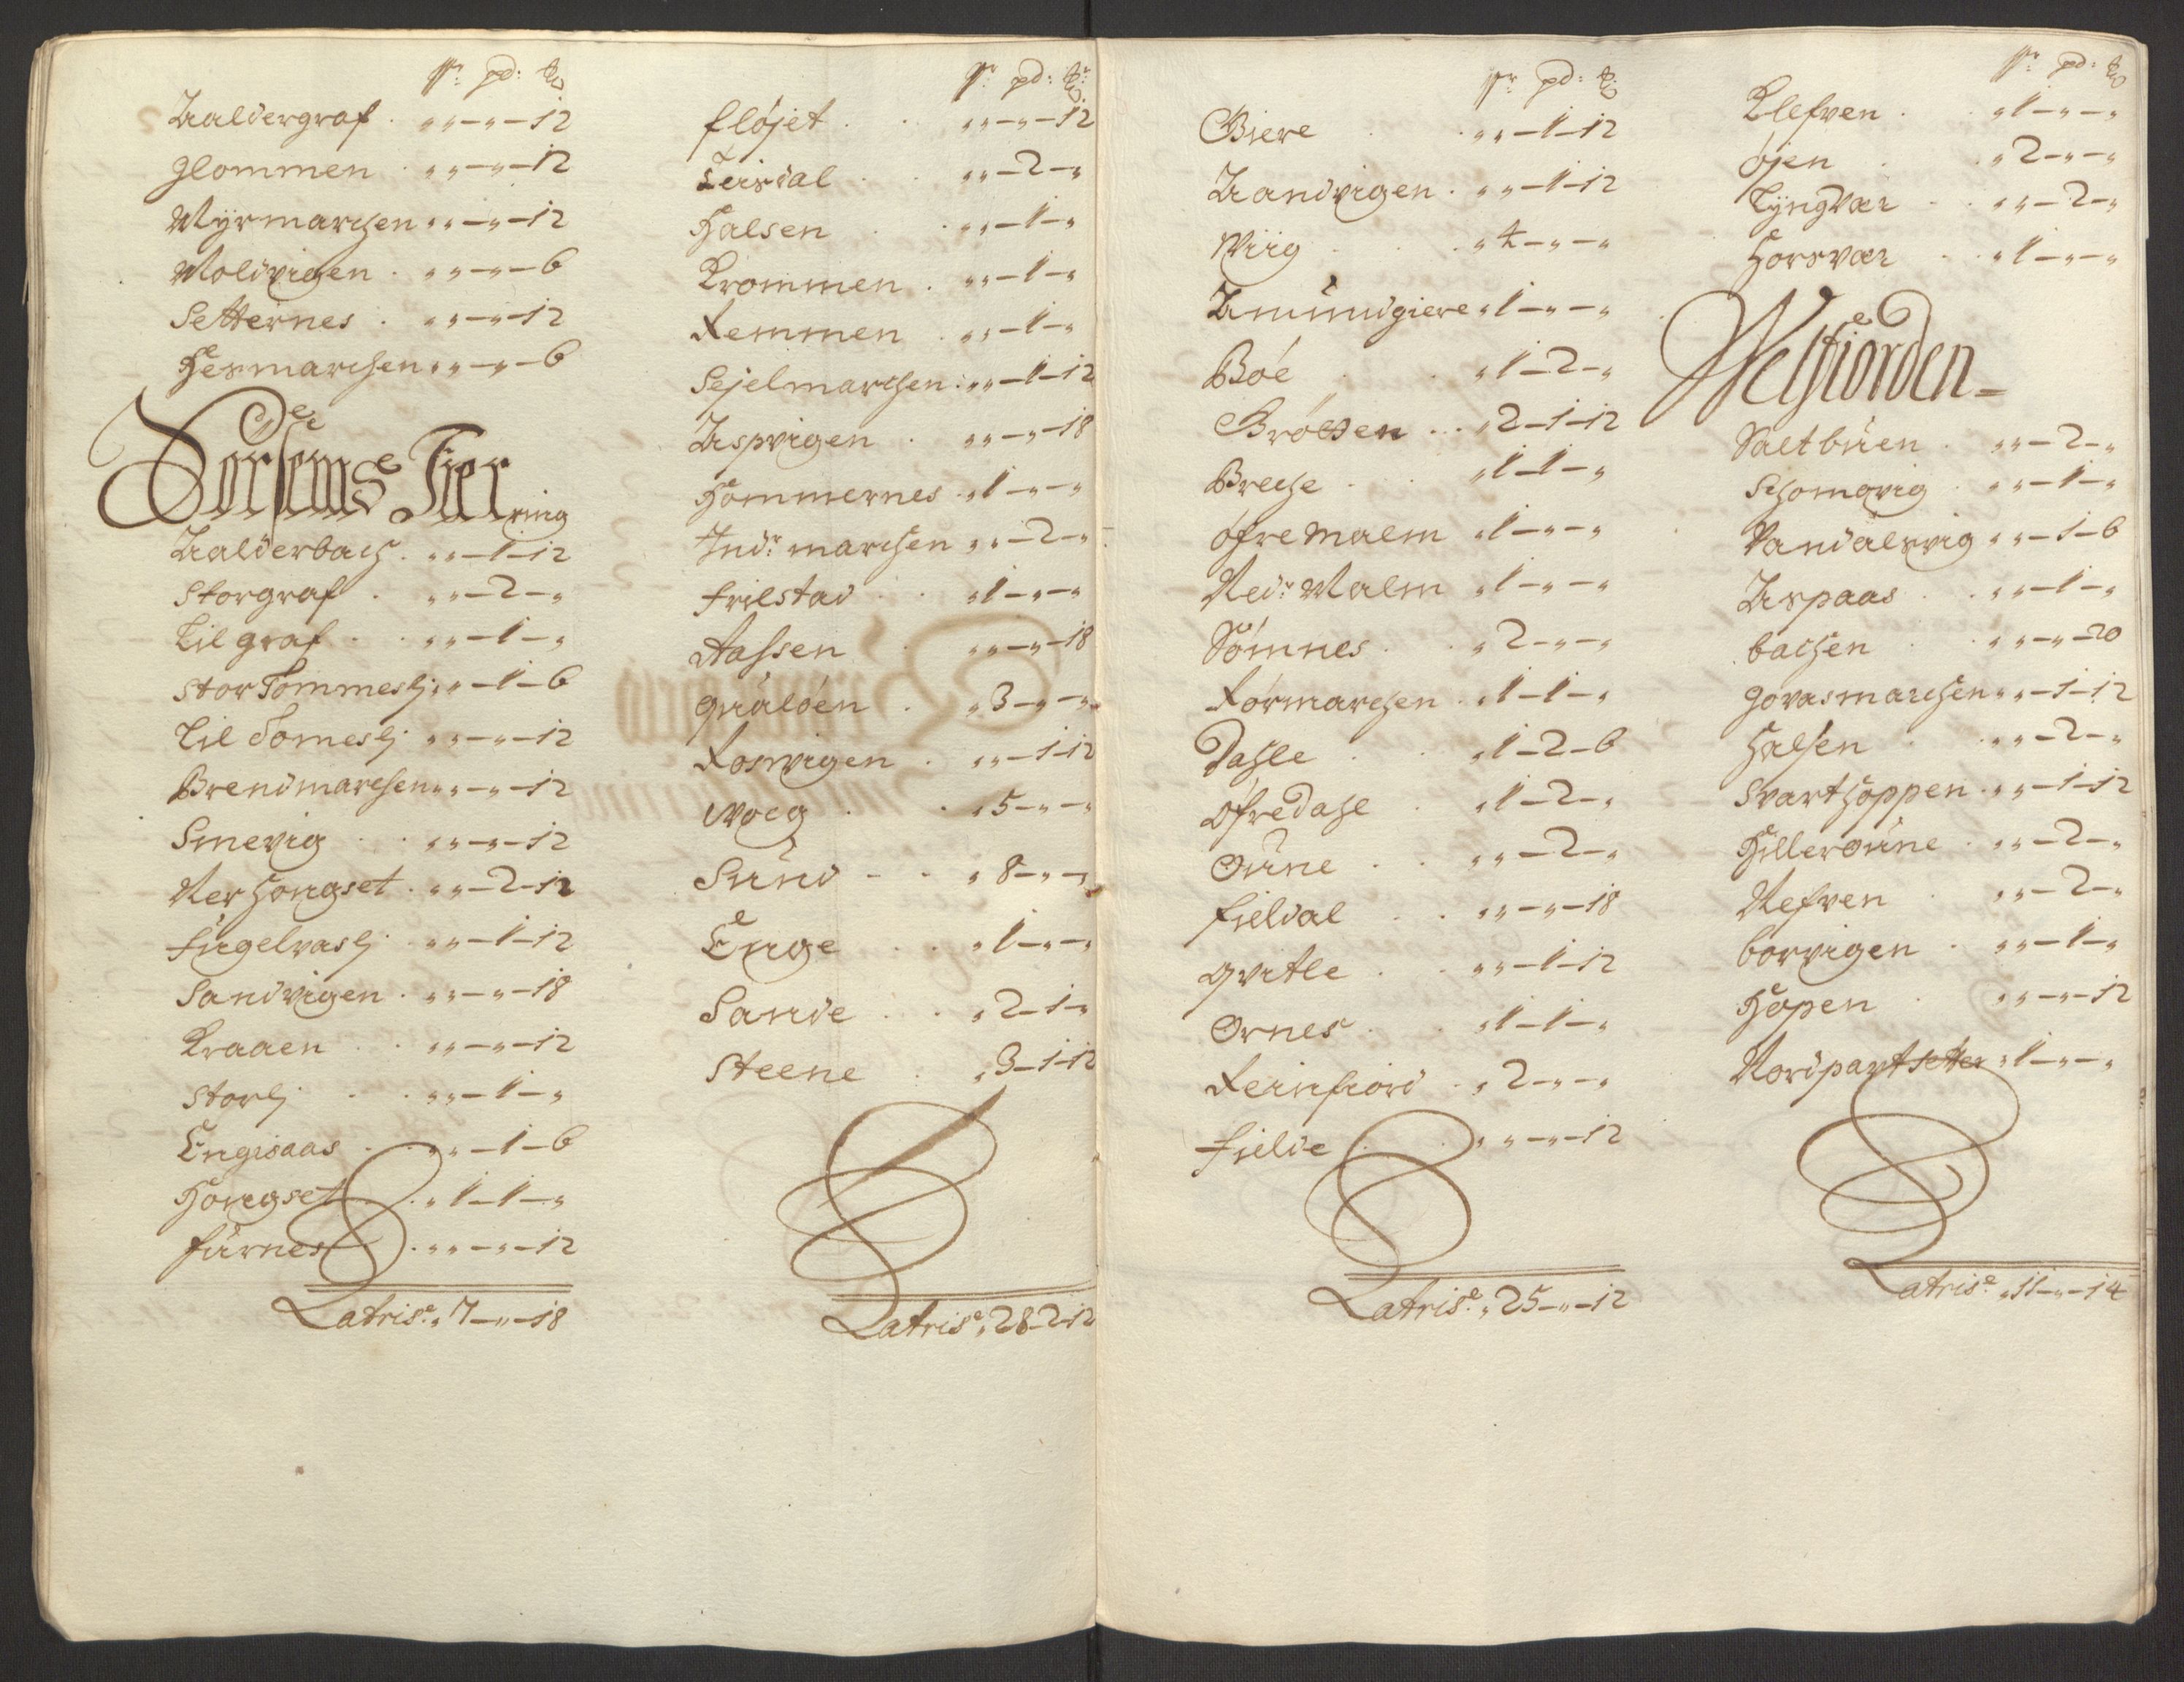 pd:
Aaldergraf . „ „ – „ – 12
Glommen . „ „ – „ – 12
Myrmarchen „ „ – „ – 12
Moldvigen . „ „ – „ – 6
Setternes . „ „ – „ – 12
Hesmarchen „ „ – „ – 6
Torhems Fier
ring
Aalderbach . „ „ – 1 – 12
Storgraf . „ „ – 2 – „
Lilgraf . . „ „ – 1 – „
Stor Tommeslj: „ „ – 1 – 6
Lil Tomeslj „ „ – „ – 12
Brendmarchen „ „ – „ – 12
Smevig . . „ „ – „ – 12
Ner Hongset . „ „ – 2 – 12
Fugelvaslj . „ „ – 1 – 12
Sandvigen . „ „ – „ – 18
Kraaen . . „ „ – „ – 12
Storlj . . „ „ – 1 – „
Engisaas . . „ „ – 1 – 6
Hongset . „ 1 – 1 – „
Furnes . „ „ – „ – 12
Latris: „ 7 – „ – 18
pd:
Fløjet . . „ „ – „ – 12
Leirdal . . „ „ – 2 – „
Halsen . . „ „ – 1 – „
Krommen . „ „ – 1 – „
Remmen . „ „ – 1 – „
Sejelmarchen . „ „ – 1 – 12
Aspvigen . „ „ – „ – 18
Hommernes . „ 1 – „ – „
Indr: marchen „ „ – 2 – „
Frilstad . . „ 1 – „ – „
Aassen . „ „ – „ – 18
Qualøen . „ 3 – „ – „
Rosvigen . „ „ – 1 – 12
Woeg . . „ 5 – „ – „
Sund . . „ 8 – „ – „
Enge . . „ 1 – „ – „
Sande . . „ 2 – 1 – „
Steene . „ 3 – 1 – 12
Latris: „ 28 – 2 – 12
pd:
Giere . „ „ – 1 – 12
Aandvigen . „ „ – 1 – 12
Wiig . . „ 4 – „ – „
Amundgiere „ 1 – „ – „
Bøe . „ 1 – 2 – „
Brøcsen . . „ 2 – 1 – 12
Breche . . „ 1 – 1 – „
Øfre Malm „ 1 – „ – „
Nedr: Malm „ 1 – „ – „
Sømnes . . „ 2 – „ – „
Rørmarchen . „ 1 – 1 – „
Dahle . . „ 1 – 2 – 6
Øfre Dahle . „ 1 – 2 – „
Oune . . „ „ – 2 – „
Fieldal . . „ „ – „ – 18
Qvitle . . „ „ – 1 – 12
Ornes . . „ 1 – 1 – „
Reinfiord . „ 2 – „ – „
Fielde . . „ „ – „ – 12
Latris: „ 25 – „ – 12
pd:
Klefven . . „ 1 – „ – „
Øjen . . „ 2 – „ – „
Lyngvær . . „ „ – 2 – „
Horsvær . . „ 1 – „ – „
Welfiorden
Saltbuen . „ „ – 2 – „
Schomovig . „ „ – 1 – „
Vandalsvig „ „ – 1 – 6
Aspaas . . „ „ – 1 – „
Bachen . „ „ – „ – 20
Govasmarchen „ „ – 1 – 12
Halsen . . „ „ – 2 – „
Svarthoppen . „ „ – 1 – 12
Hilleroune . „ „ – 2 – „
Nefven . „ „ – 2 – „
Borvigen . „ „ – 1 – „
Hopen . „ „ – „ – 12
Nordpart setter „ 1 – „ – „
Latris: „ 11 – „ – 14